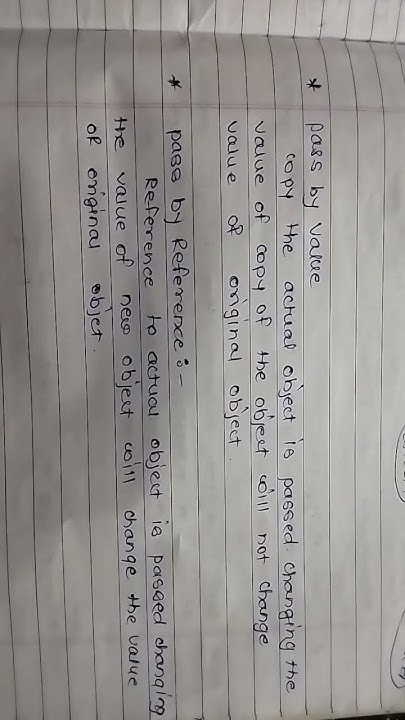 * pass by value
copy the actual object is passed. changing the
value of copy of the object will not change
value of original object.
* pass by Reference :-
Reference to actual object is passed changing
the value of new object will change the value
of original objet.